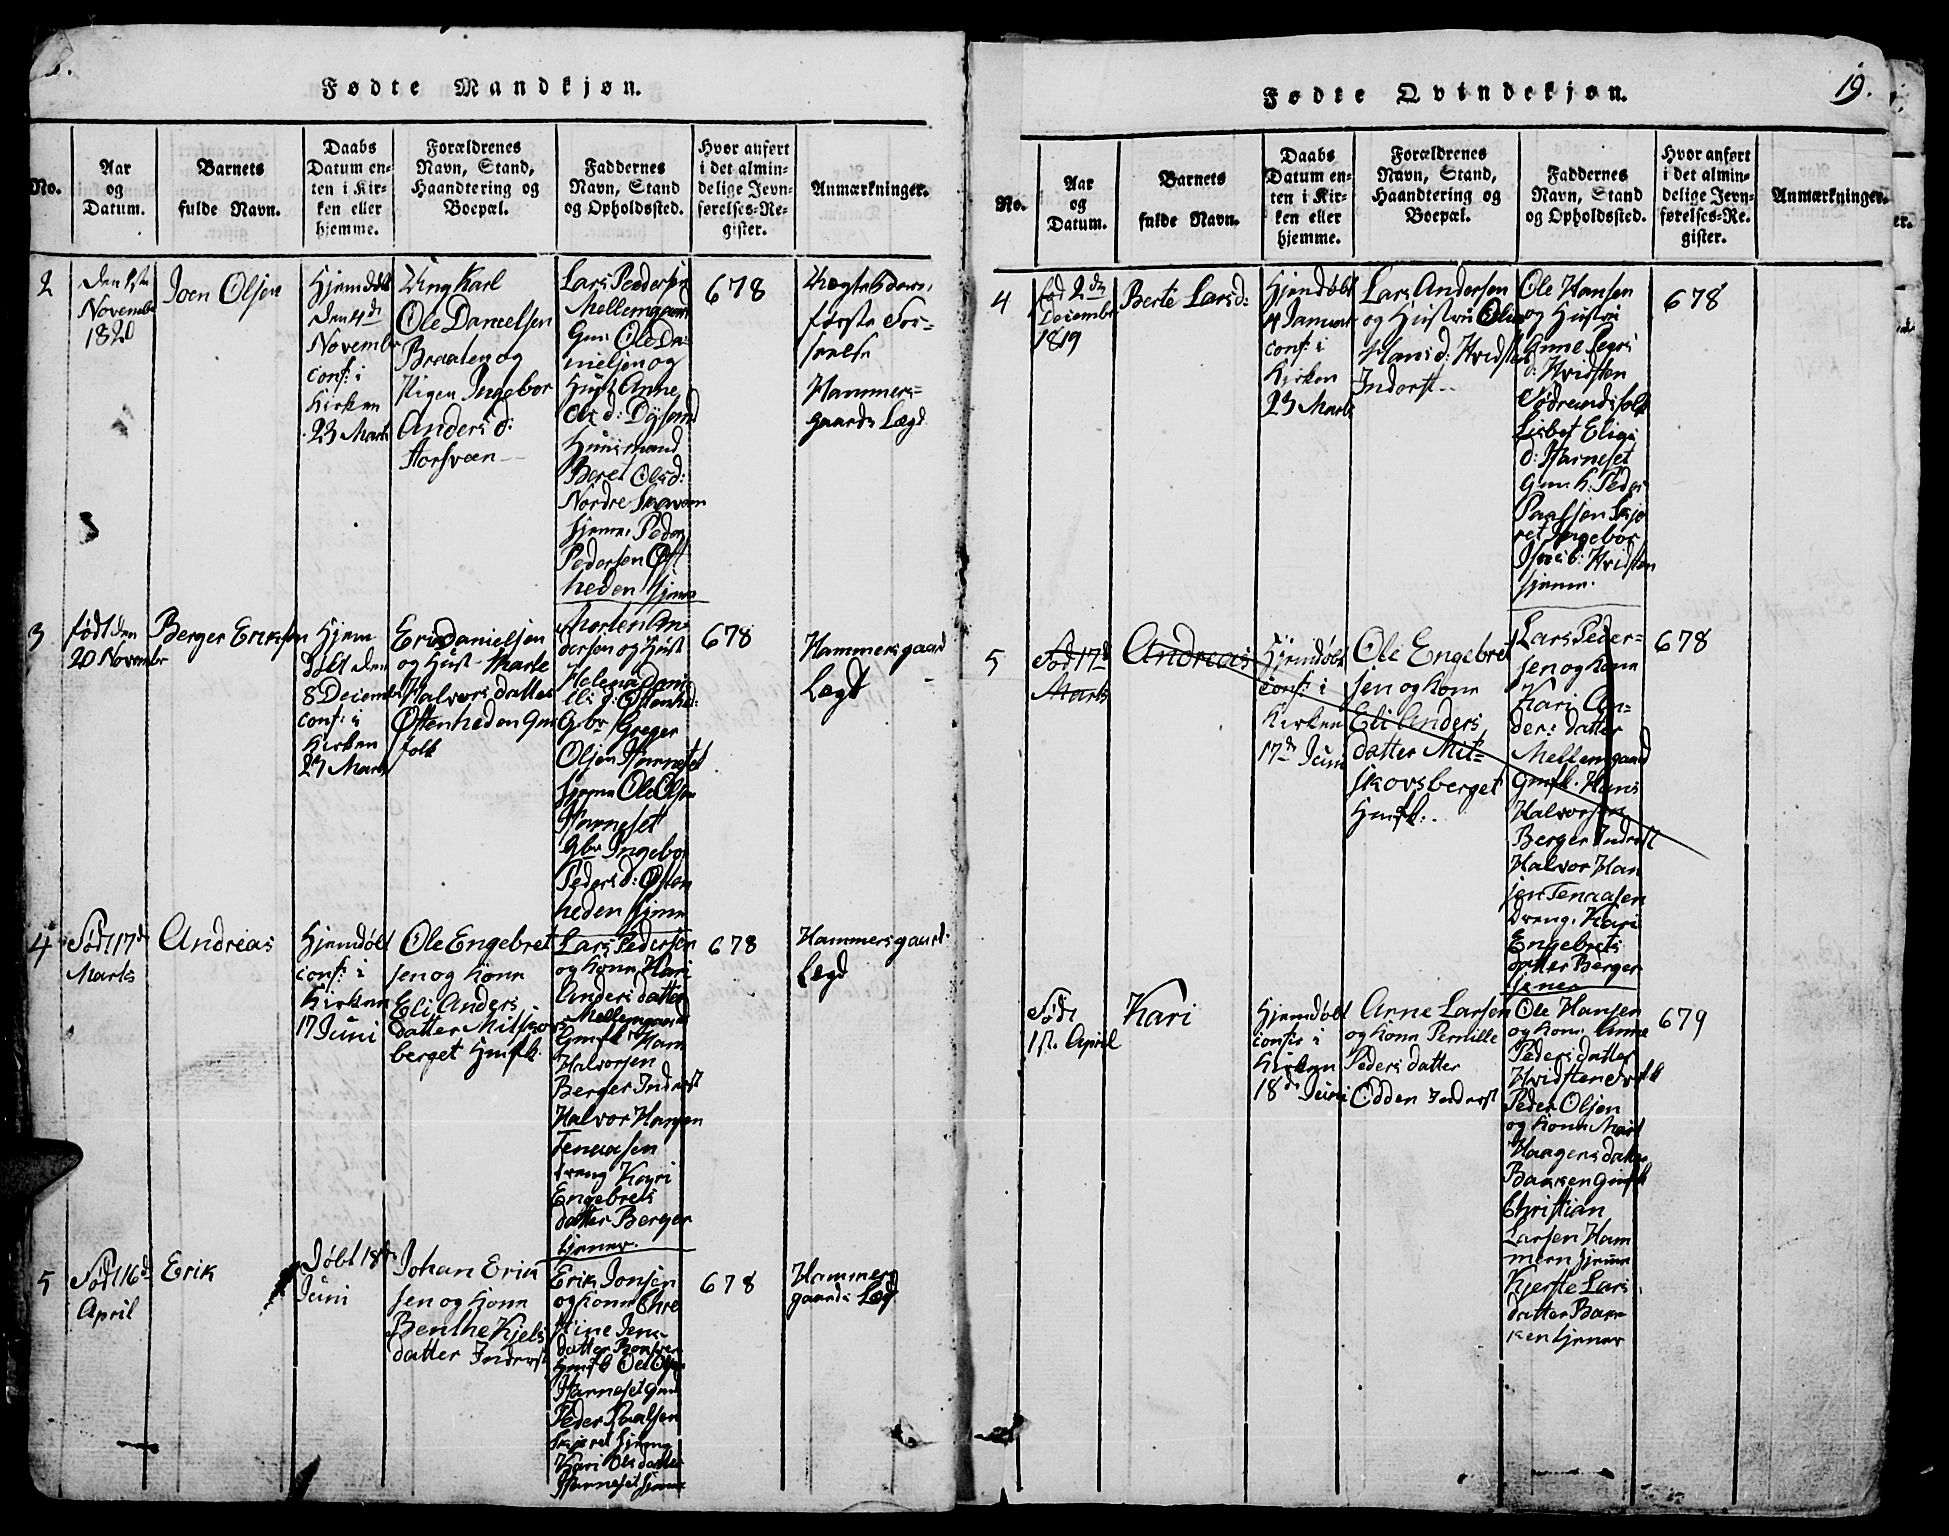 Fødte Mandkjøn.
No.
Aar
og
Datum.
Barnets
fulde Navn.
Daabs
Datum en-
ten i Kir-
ken eller
hjemme.
Forældrenes
Navn, Stand,
Haandtering og
Boepæl.
Faddernes
Navn, Stand
og Opholdssted.
Hvor anført
i det almin-
delige Jevn-
førelses-Re-
gister.
Anmærkninger.
2
den 1ste
Novembr
1820
Joen Olsen
Hjemdøbt
den 4de
Novembr
conf: i
Kirken
23 Marts
Ung Karl
Ole Danielsen
Braaten og
Pigen Ingebor
Anders d:
Lars Pedersen
Mellemgaard
Gm: Ole Da-
nielsen og
Hust Anne
Ols d:
Huusmand
Beret Olsd:
Nordre
tjener Peder
Pedersen Øst
heden tjener
678
første For-
seelse
Hammers-
gaards Lægd
3
født den
20 Novembr
Berger Eriksen
Hjem
døbt den
8 Decemer
conf: i
Kirken
23 Marts
Eric Danielsen
og Hust Marte
Halvors datter
Østenheden Gm
folk
Morten An
dersen og Hust
Helena Dani
elis d: Østenhed:
Gbr Greger
Olsen Harneset
tjener Ole Olsen
Harneset
Gbr Ingebor
Peders d: Østen
heden tjener
678
Hammersgaard
Lægd
4
Født 17de
Marts
Andreas
Hjemdøbt
conf: i
Kirken
17 Juni
Ole Engebret
sen og Kone
Eli Anders
datter Milskovs
berget Hmfk.
Lars Pedersen
og Kone Kari
Anders datter
Mellemgaard
Gmfk Hans
Halvorsen
Berger Inderst
Halvor Hansen
Tenaasen
dreng Kari
Engebrets
datter Berger
tjener.
678
Hammersgaard:
Lægd
5
Født 16de
April
Erik
Døbt 18de
Juni
Johan Erik
sen og Kone
Benthe Kjels
datter Inderst
Erik Jonsen
og Kone Chre
stine Jens
datter
Hmfk Ole Olsen
Harneset Gmd
Peder Paalsen
Skjøret tjener
Kari Ols datter
Harneset tjener
678
Hammers
gaards Lægd
19.
Fødte Qvindekjøn.
No.
Aar
og
Datum.
Barnets
fulde Navn.
Daabs
Datum en-
ten i Kir-
ken eller
hjemme.
Forældrenes
Navn, Stand,
Haandtering og
Boepæl.
Faddernes
Navn, Stand
og Opholdssted.
Hvor anført
i det almin-
delige Jevn-
førelses-Re-
gister.
Anmærkninger.
4
fød 2den
Decembr
1819
Berte Larsd:
Hjemdøbt
4 Januar
conf: i
Kirken
23 Marts
Lars Andersen
og Hustru Oline
Hans d: Hvidsten
Inderst
Ole Hansen
og Hustru
Anne Peders
d: Hvidsten
Lisbet
d: Harneset
Gm: k: Peder
Paalsen Skjø
ret Ingebor
Hvidsten
tjener.
678
5
Fød 17de
Marts
Andreas
Hjemdøbt
conf: i
Kirken
17de Juni
Ole Engebret
sen og Kone
Eli Anders
datter Mil-
skovsberget
Hmfk:
Lars Peder-
sen og Kone
Kari An-
ders datter
Mellemgaard
Gmfk. Hans
Halvorsen
Berger Inderst
Halvor Han
sen Tenaasen
dreng. Kari
Engebrets
datter Berger
tjener
678
Født
1st. April
Kari
Hjemdøbt
conf: i
Kirken
18de Juni
Arne Larsen
og Kone Pernille
Peders datter
Odden Inderst
Ole Hansen
og Kone Anne
Peders datter
Hvidsten
Peder Olsen
og Kone Marit
Haagens datter
Bakken Gmfk
Christian
Larsen Ham
mern tjener
Kjerste Lars
datter Bak
ken tjener
679